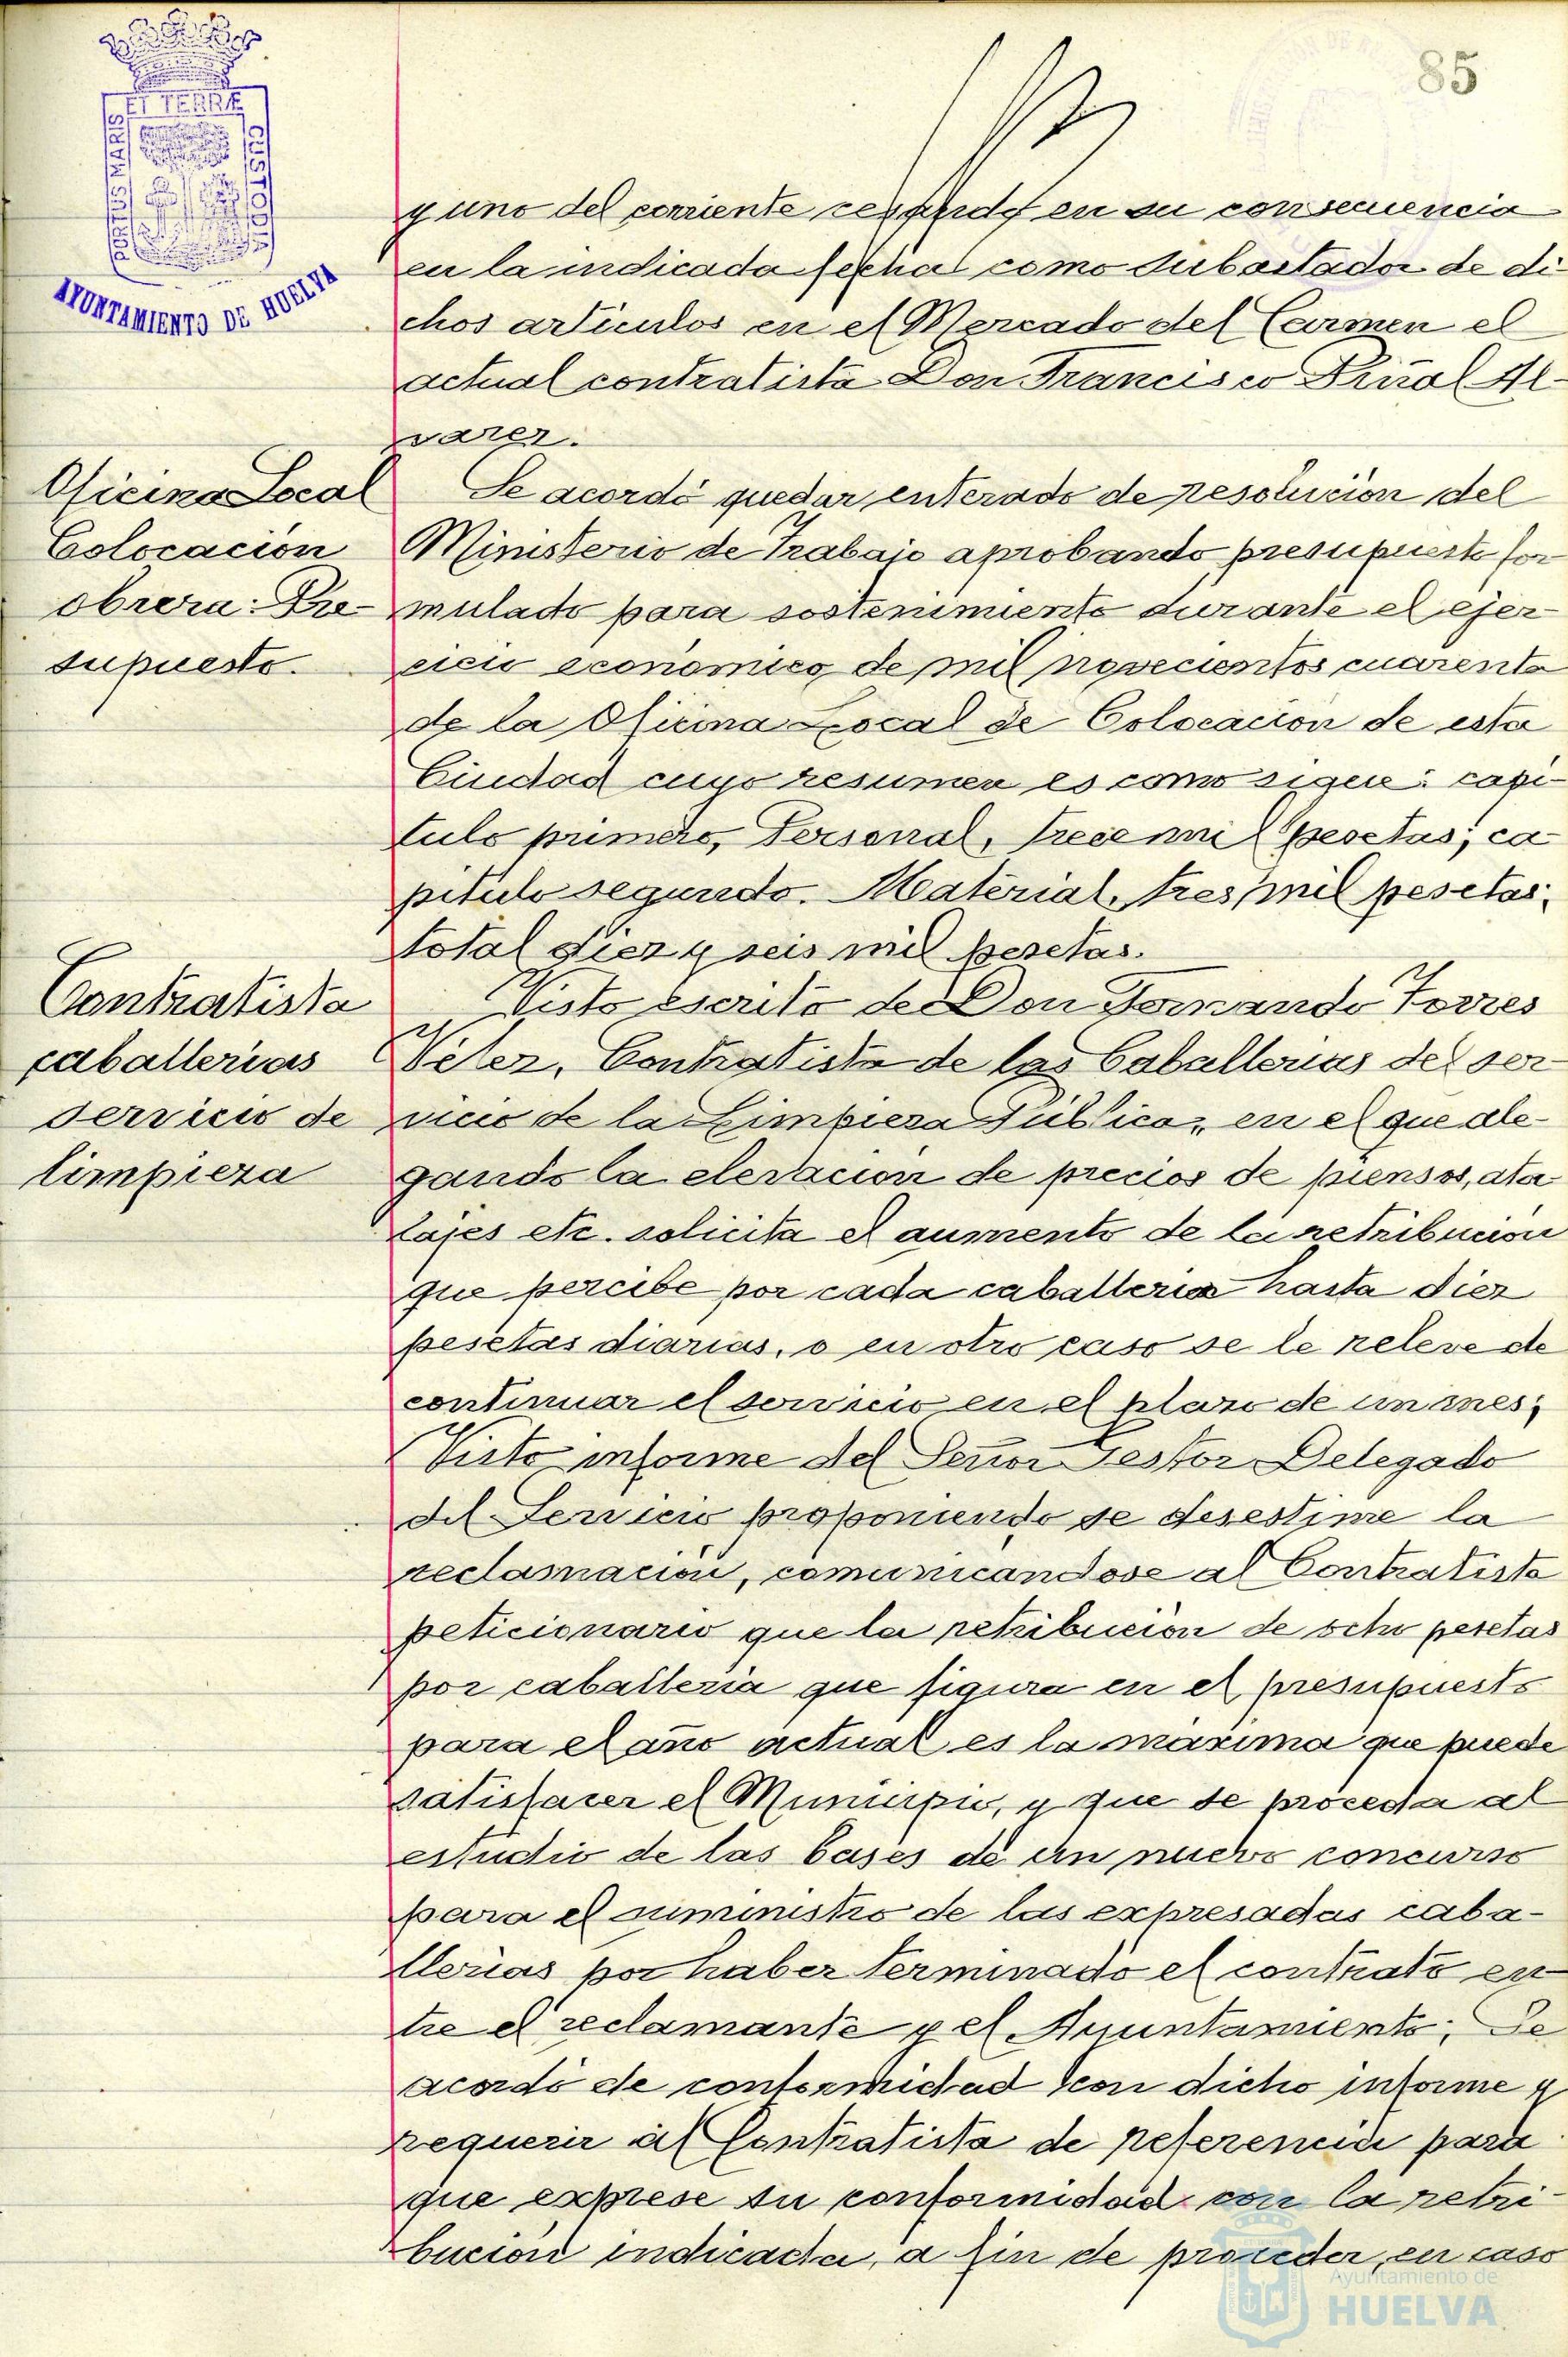 85
ET TERRÆ
AYUNTAMIENTO DE HUELVA
y uno del corriente cesando en su consecuencia
en la indicada fecha como subastador de di
chos articulos en el Mercado del Carmen el
actual contratista Don Francisco Al-
varez.
Oficina Local
Colocacion
obrera: Pre-
supuesto.
Se acordó quedar enterado de resolucion del
Ministerio de Trabajo aprobando presupuesto for
mulado para sostenimiento durante el ejer-
cicio economico de mil novecientos cuarenta
de la Oficina Local de Colocacion de esta
Ciudad cuyo resumen es como sigue: capi-
tulo primero, Personal, trece mil pesetas; ca
pitulo segundo. Material, tres mil pesetas;
total diez y seis mil pesetas.
Contratista
caballerias
servicio de
limpieza
Visto escrito de Don Fernando Torres
Velez, Contratista de las Caballerias del ser
vicio de la Limpieza Pública, en el que ale-
gando la elevacion de precios de piensos, ata
lajes etc. solicita el aumento de la retribucion
que percibe por cada caballeria hasta diez
pesetas diarias, o en otro caso se le releve de
continuar el servicio en el plazo de un mes;
Visto informe del Señor Gestor Delegado
del Servicio proponiendo se desestime la
reclamacion, comunicandose al Contratista
peticionario que la retribucion de ocho pesetas
por caballeria que figura en el presupuesto
para el año actual es la maxima que puede
satisfacer el Municipio, y que se proceda al
estudio de las bases de un nuevo concurso
para el suministro de las expresadas caba-
llerias por haber terminado el contrato en
tre el reclamante y el Ayuntamiento; Se
acordó de conformidad con dicho informe y
requerir al Contratista de referencia para
que exprese su conformidad con la retri-
bucion indicada, a fin de proceder, en caso
Ayuntamiento de
HUELVA